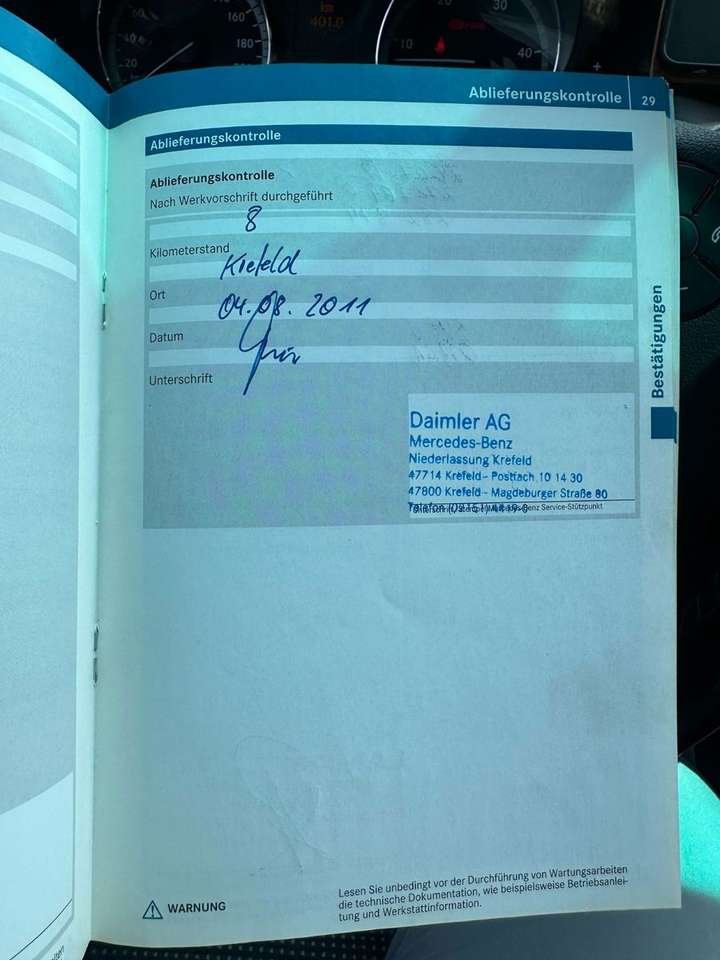 160
180
20
km
401.0
20
30
10
40
Ablieferungskontrolle 29
Ablieferungskontrolle
Ablieferungskontrolle
Nach Werkvorschrift durchgeführt
8
Kilometerstand
Krefeld
Ort
04.08.2011
Datum
Unterschrift
Bestätigungen
Daimler AG
Mercedes-Benz
Niederlassung Krefeld
47714 Krefeld - Postfach 10 14 30
47800 Krefeld - Magdeburger Straße 80
Telefon
Benz Service-Stützpunkt
WARNUNG
Lesen Sie unbedingt vor der Durchführung von Wartungsarbeiten
die technische Dokumentation, wie beispielsweise Betriebsanlei-
tung und Werkstattinformation.